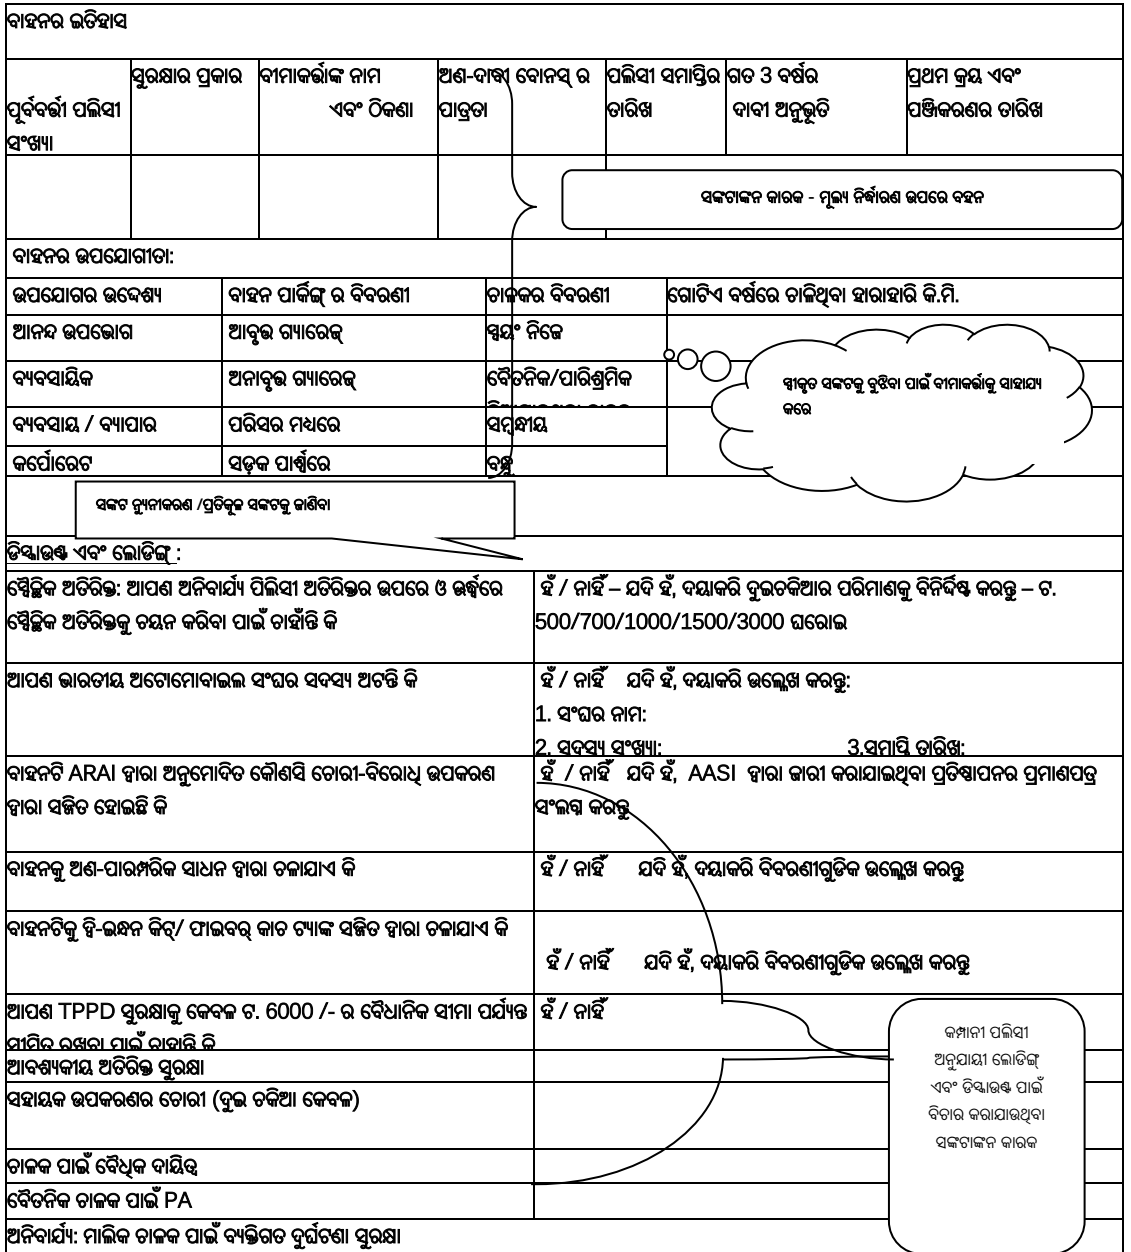 ବାହନର ଇତିହାସ
ପୂର୍ବବର୍ତ୍ତୀ ପଲିସୀ
ସଂଖ୍ୟା
ସୁରକ୍ଷାର ପ୍ରକାର
ବୀମାକର୍ତ୍ତାଙ୍କ ନାମ
ଏବଂ ଠିକଣା
ଅଣ-ଦାବୀ ବୋନସ୍ ର
ପାତ୍ରତା
ପଲିସୀ ସମାପ୍ତିର
ତାରିଖ
ଗତ 3 ବର୍ଷର
ଦାବୀ ଅନୁଭୂତି
ପ୍ରଥମ କ୍ରୟ ଏବଂ
ପଞ୍ଜିକରଣର ତାରିଖ
ସଙ୍କଟାଙ୍କନ କାରକ - ମୂଲ୍ୟ ନିର୍ଦ୍ଧାରଣ ଉପରେ ବହନ
ବାହନର ଉପଯୋଗୀତା:
ଉପଯୋଗର ଉଦ୍ଦେଶ୍ୟ ବାହନ ପାର୍କିଙ୍ଗ୍ ର ବିବରଣୀ ଚାଳକର ବିବରଣୀ ଗୋଟିଏ ବର୍ଷରେ ଚାଳିଥିବା ହାରାହାରି କି.ମି.
ଆନନ୍ଦ ଉପଭୋଗ ଆବୃତ୍ତ ଗ୍ୟାରେଜ୍ ସ୍ୱୟଂ ନିଜେ
ବ୍ୟବସାୟିକ ଅନାବୃତ୍ତ ଗ୍ୟାରେଜ୍ ବୈତନିକ/ପାରିଶ୍ରମିକ
ବ୍ୟବସାୟ / ବ୍ୟାପାର ପରିସର ମଧ୍ୟରେ ସମ୍ବନ୍ଧୀୟ
କର୍ପୋରେଟ ସଡ଼କ ପାର୍ଶ୍ୱରେ ବନ୍ଧୁ
ସ୍ୱୀକୃତ ସଙ୍କଟକୁ ବୁଝିବା ପାଇଁ ବୀମାକର୍ତ୍ତାକୁ ସାହାଯ୍ୟ
କରେ
ସଙ୍କଟ ନ୍ୟୁନୀକରଣ /ପ୍ରତିକୂଳ ସଙ୍କଟକୁ ଜାଣିବା
ଡିସ୍କାଉଣ୍ଟ ଏବଂ ଲୋଡିଙ୍ଗ୍ :
ସ୍ୱୈଚ୍ଛିକ ଅତିରିକ୍ତ: ଆପଣ ଅନିବାର୍ଯ୍ୟ ପିଲିସୀ ଅତିରିକ୍ତର ଉପରେ ଓ ଊର୍ଦ୍ଧ୍ୱରେ
ସ୍ୱୈଚ୍ଛିକ ଅତିରିକ୍ତକୁ ଚୟନ କରିବା ପାଇଁ ଚାହାଁନ୍ତି କି
ହଁ / ନାହିଁ – ଯଦି ହଁ, ଦୟାକରି ଦୁଇଚକିଆର ପରିମାଣକୁ ବିନିର୍ଦ୍ଦିଷ୍ଟ କରନ୍ତୁ – ଟ.
500/700/1000/1500/3000 ଘରୋଇ
ଆପଣ ଭାରତୀୟ ଅଟୋମୋବାଇଲ ସଂଘର ସଦସ୍ୟ ଅଟନ୍ତି କି
ହଁ / ନାହିଁ ଯଦି ହଁ, ଦୟାକରି ଉଲ୍ଲେଖ କରନ୍ତୁ:
1. ସଂଘର ନାମ:
2. ସଦସ୍ୟ ସଂଖ୍ୟା: 3.ସମାପ୍ତି ତାରିଖ:
ବାହନଟି ARAI ଦ୍ୱାରା ଅନୁମୋଦିତ କୌଣସି ଚୋରୀ-ବିରୋଧି ଉପକରଣ
ଦ୍ୱାରା ସଜ୍ଜିତ ହୋଇଛି କି
ହଁ / ନାହିଁ ଯଦି ହଁ, AASI ଦ୍ୱାରା ଜାରୀ କରାଯାଇଥିବା ପ୍ରତିଷ୍ଠାପନର ପ୍ରମାଣପତ୍ର
ସଂଲଗ୍ନ କରନ୍ତୁ
ବାହନକୁ ଅଣ-ପାରମ୍ପରିକ ସାଧନ ଦ୍ୱାରା ଚଳାଯାଏ କି
ହଁ / ନାହିଁ ଯଦି ହଁ, ଦୟାକରି ବିବରଣୀଗୁଡିକ ଉଲ୍ଲେଖ କରନ୍ତୁ
ବାହନଟିକୁ ଦ୍ୱି-ଇନ୍ଧନ କିଟ୍/ ଫାଇବର୍ କାଚ ଟ୍ୟାଙ୍କ ସଜ୍ଜିତ ଦ୍ୱାରା ଚଳାଯାଏ କି
ହଁ / ନାହିଁ ଯଦି ହଁ, ଦୟାକରି ବିବରଣୀଗୁଡିକ ଉଲ୍ଲେଖ କରନ୍ତୁ
ଆପଣ TPPD ସୁରକ୍ଷାକୁ କେବଳ ଟ. 6000 /- ର ବୈଧାନିକ ସୀମା ପର୍ଯ୍ୟନ୍ତ
ସୀମିତ ରଖିବା ପାଇଁ ଚାହାନ୍ତି କି
ହଁ / ନାହିଁ
ଆବଶ୍ୟକୀୟ ଅତିରିକ୍ତ ସୁରକ୍ଷା
ସହାୟକ ଉପକରଣର ଚୋରୀ (ଦୁଇ ଚକିଆ କେବଳ)
ଚାଳକ ପାଇଁ ବୈଧିକ ଦାୟିତ୍ୱ
ବୈତନିକ ଚାଳକ ପାଇଁ PA
ଅନିବାର୍ଯ୍ୟ: ମାଲିକ ଚାଳକ ପାଇଁ ବ୍ୟକ୍ତିଗତ ଦୁର୍ଘଟଣା ସୁରକ୍ଷା
କମ୍ପାନୀ ପଲିସୀ
ଅନୁଯାୟୀ ଲୋଡିଙ୍ଗ୍
ଏବଂ ଡିସ୍କାଉଣ୍ଟ ପାଇଁ
ବିଚାର କରାଯାଉଥିବା
ସଙ୍କଟାଙ୍କନ କାରକ